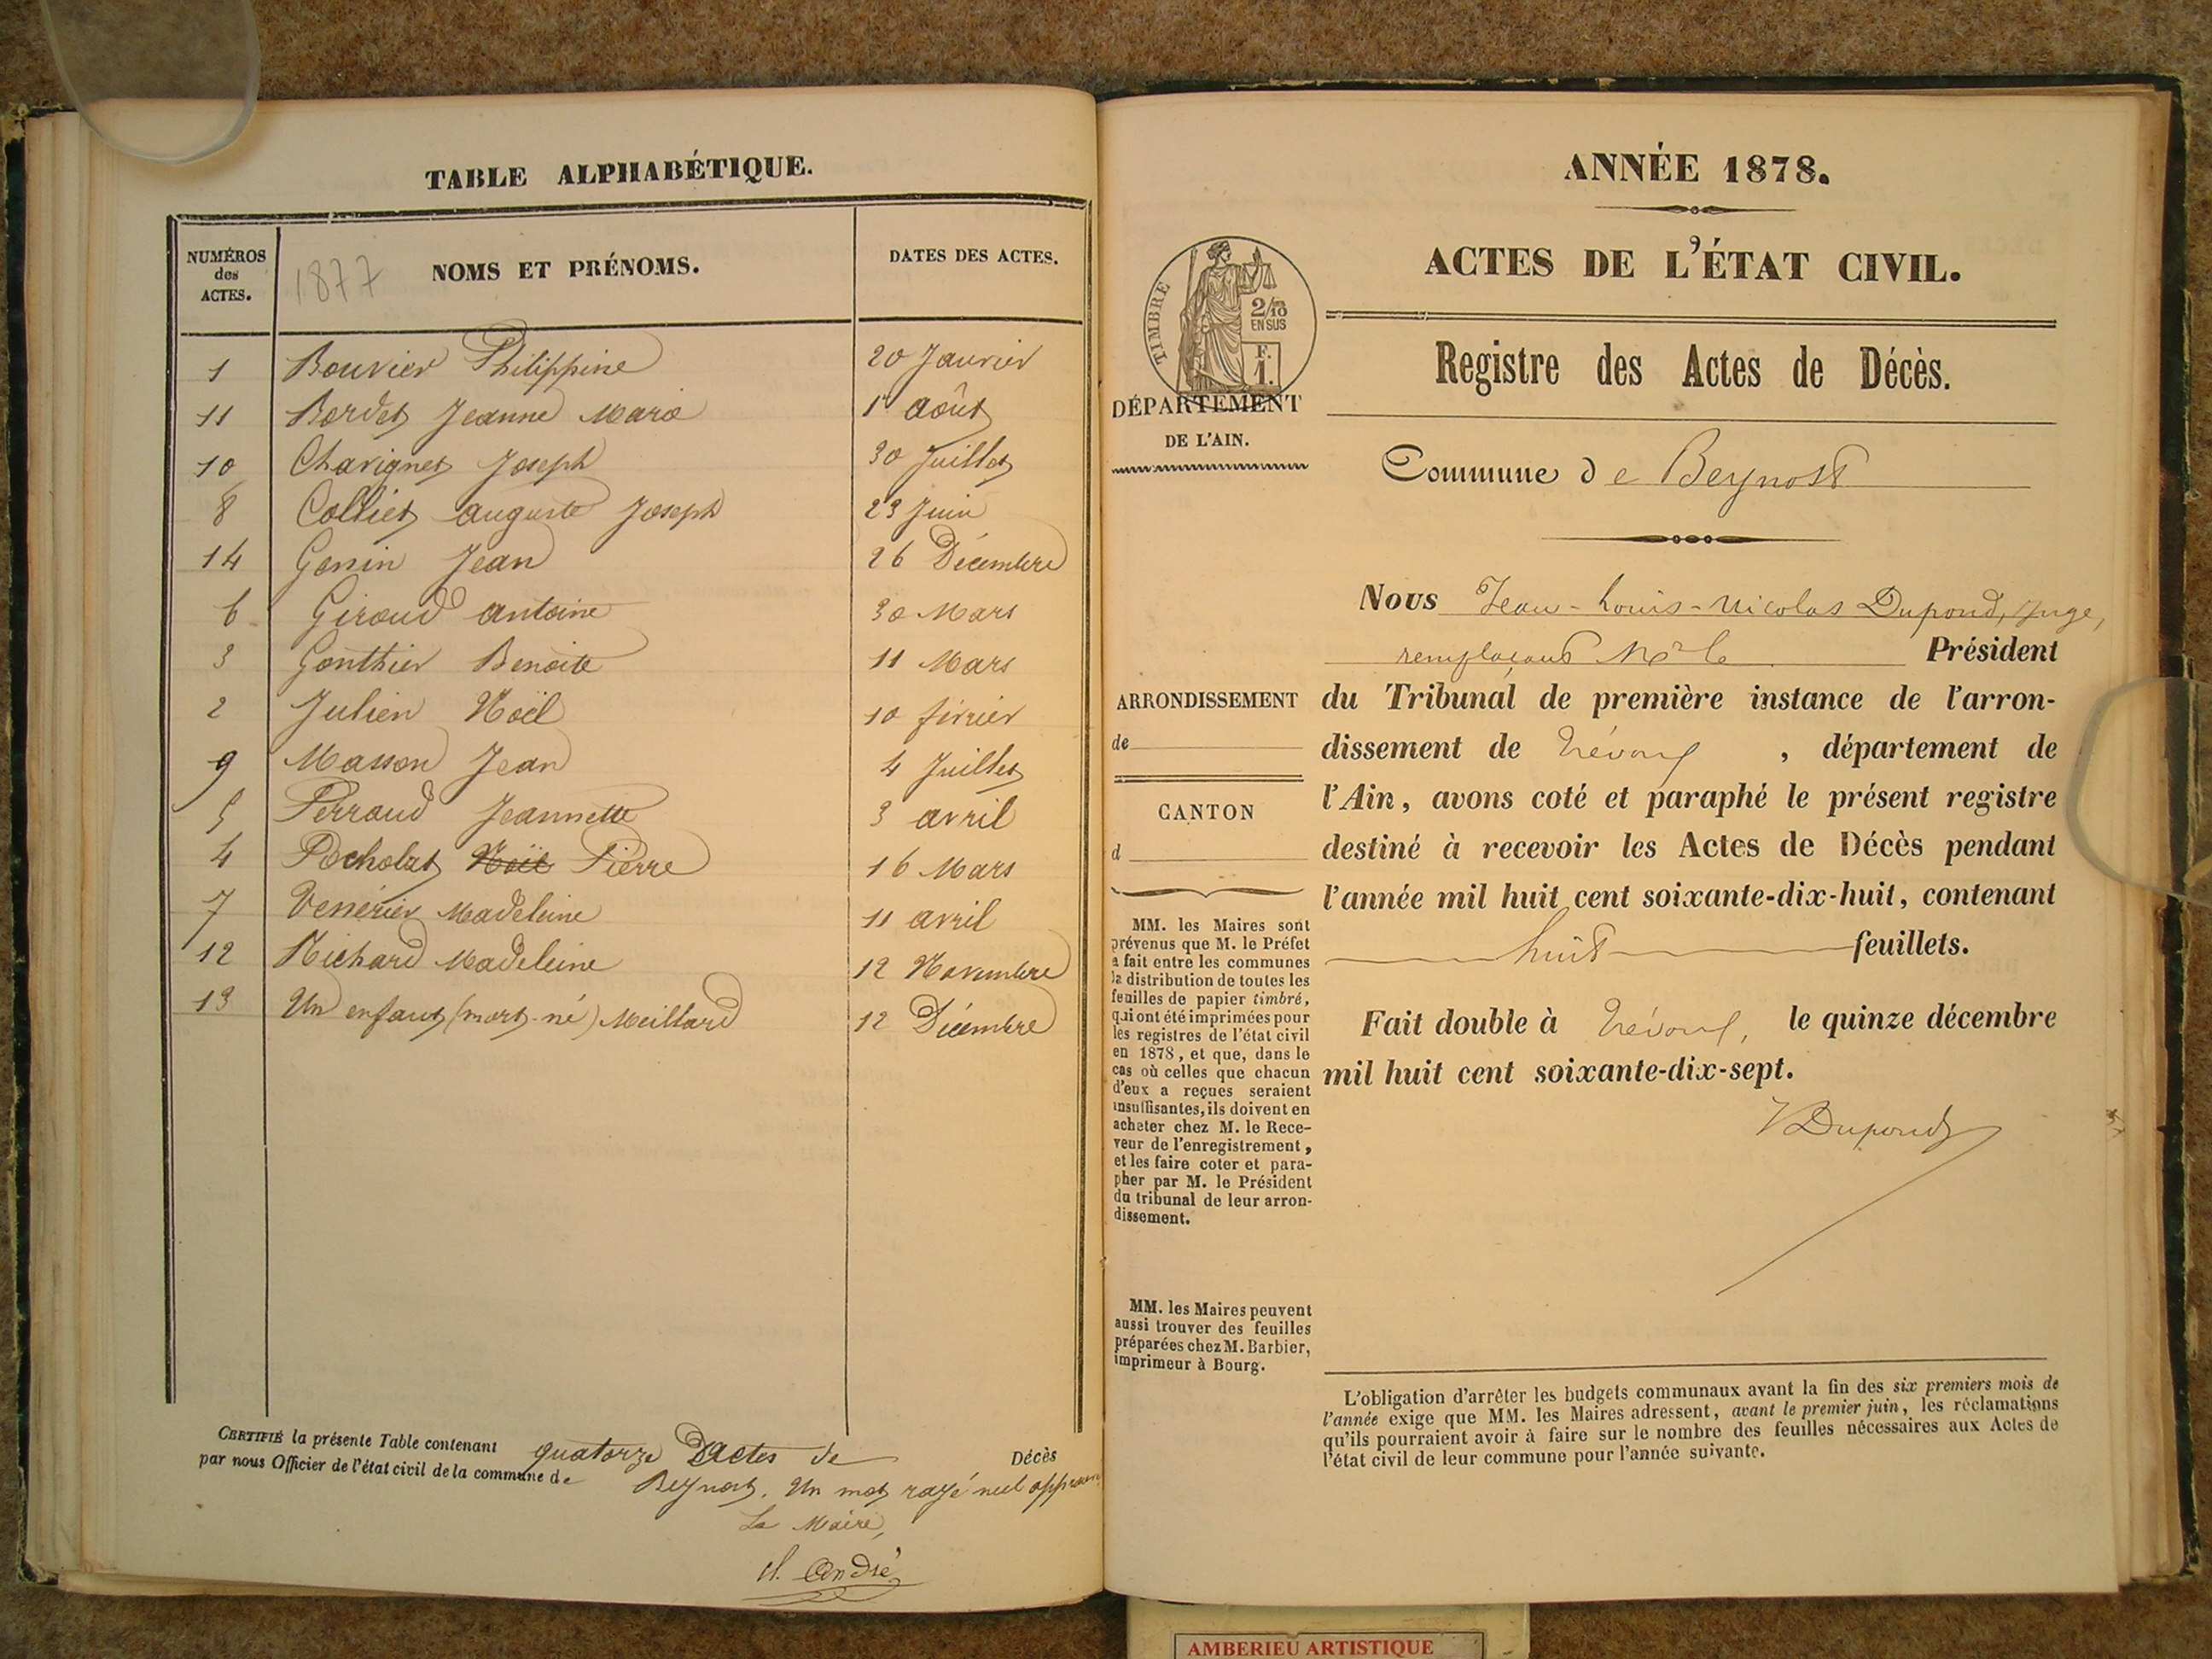 TABLE ALPHABÉTIQUE.
NUMÉROS des ACTES.
1877
NOMS ET PRÉNOMS.
DATES DES ACTES.
1 Bouvier Philippine 20 Janvier
11 Bordet Jeanne Marie 1er août
10 Chavignet Joseph 30 Juillet
8 Colliet auguste Joseph 23 Juin
14 Genin Jean 26 Décembre
6 Giroud antoine 30 Mars
3 Gonthier Benoite 11 Mars
2 Julien Noël 10 février
9 Masson Jean 4 Juillet
5 Perraud Jeannette 3 avril
4 Pocholat Noël Pierre 16 Mars
7 Venérier Madeleine 11 avril
12 Richard Madeleine 12 Novembre
13 Un enfant (mort-né) Meillard 12 Décembre
CERTIFIÉ la présente Table contenant quatorze Dactes de Décès
par nous Officier de l'état civil de la commune de Beynost. Un mot rayé nul
Le Maire,
André
ANNÉE 1878.
ACTES DE L'ÉTAT CIVIL.
TIMBRE
2/10
EN SUS
F.
1.
Registre des Actes de Décès.
DÉPARTEMENT
DE L'AIN.
Commune de Beynost
Nous Jean-Louis-Nicolas Dupond, Juge,
remplaçant Mr le Président
du Tribunal de première instance de l'arron-
dissement de Trévoux, département de
l'Ain, avons coté et paraphé le présent registre
destiné à recevoir les Actes de Décès pendant
l'année mil huit cent soixante-dix-huit, contenant
huit feuillets.
Fait double à Trévoux, le quinze décembre
mil huit cent soixante-dix-sept.
Dupond
ARRONDISSEMENT
de
CANTON
d
MM. les Maires sont
prévenus que M. le Préfet
a fait entre les communes
la distribution de toutes les
feuilles de papier timbré,
qui ont été imprimées pour
les registres de l'état civil
en 1878, et que, dans le
cas où celles que chacun
d'eux a reçues seraient
insuffisantes, ils doivent en
acheter chez M. le Rece-
veur de l'enregistrement,
et les faire coter et para-
pher par M. le Président
du tribunal de leur arron-
dissement.
MM. les Maires peuvent
aussi trouver des feuilles
préparées chez M. Barbier,
imprimeur à Bourg.
L'obligation d'arrêter les budgets communaux avant la fin des six premiers mois de
l'année exige que MM. les Maires adressent, avant le premier juin, les réclamations
qu'ils pourraient avoir à faire sur le nombre des feuilles nécessaires aux Actes de
l'état civil de leur commune pour l'année suivante.
AMBERIEU ARTISTIQUE